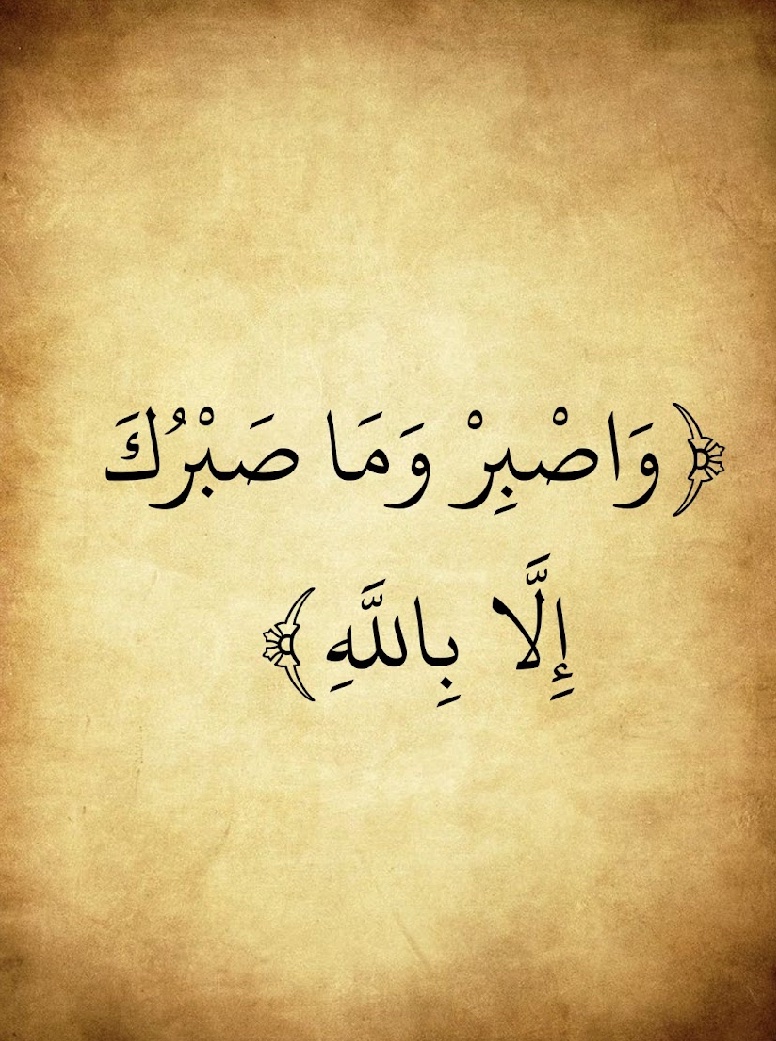 ﴿وَاصْبِرْ وَمَا صَبْرُكَ
إِلَّا بِاللَّهِ﴾